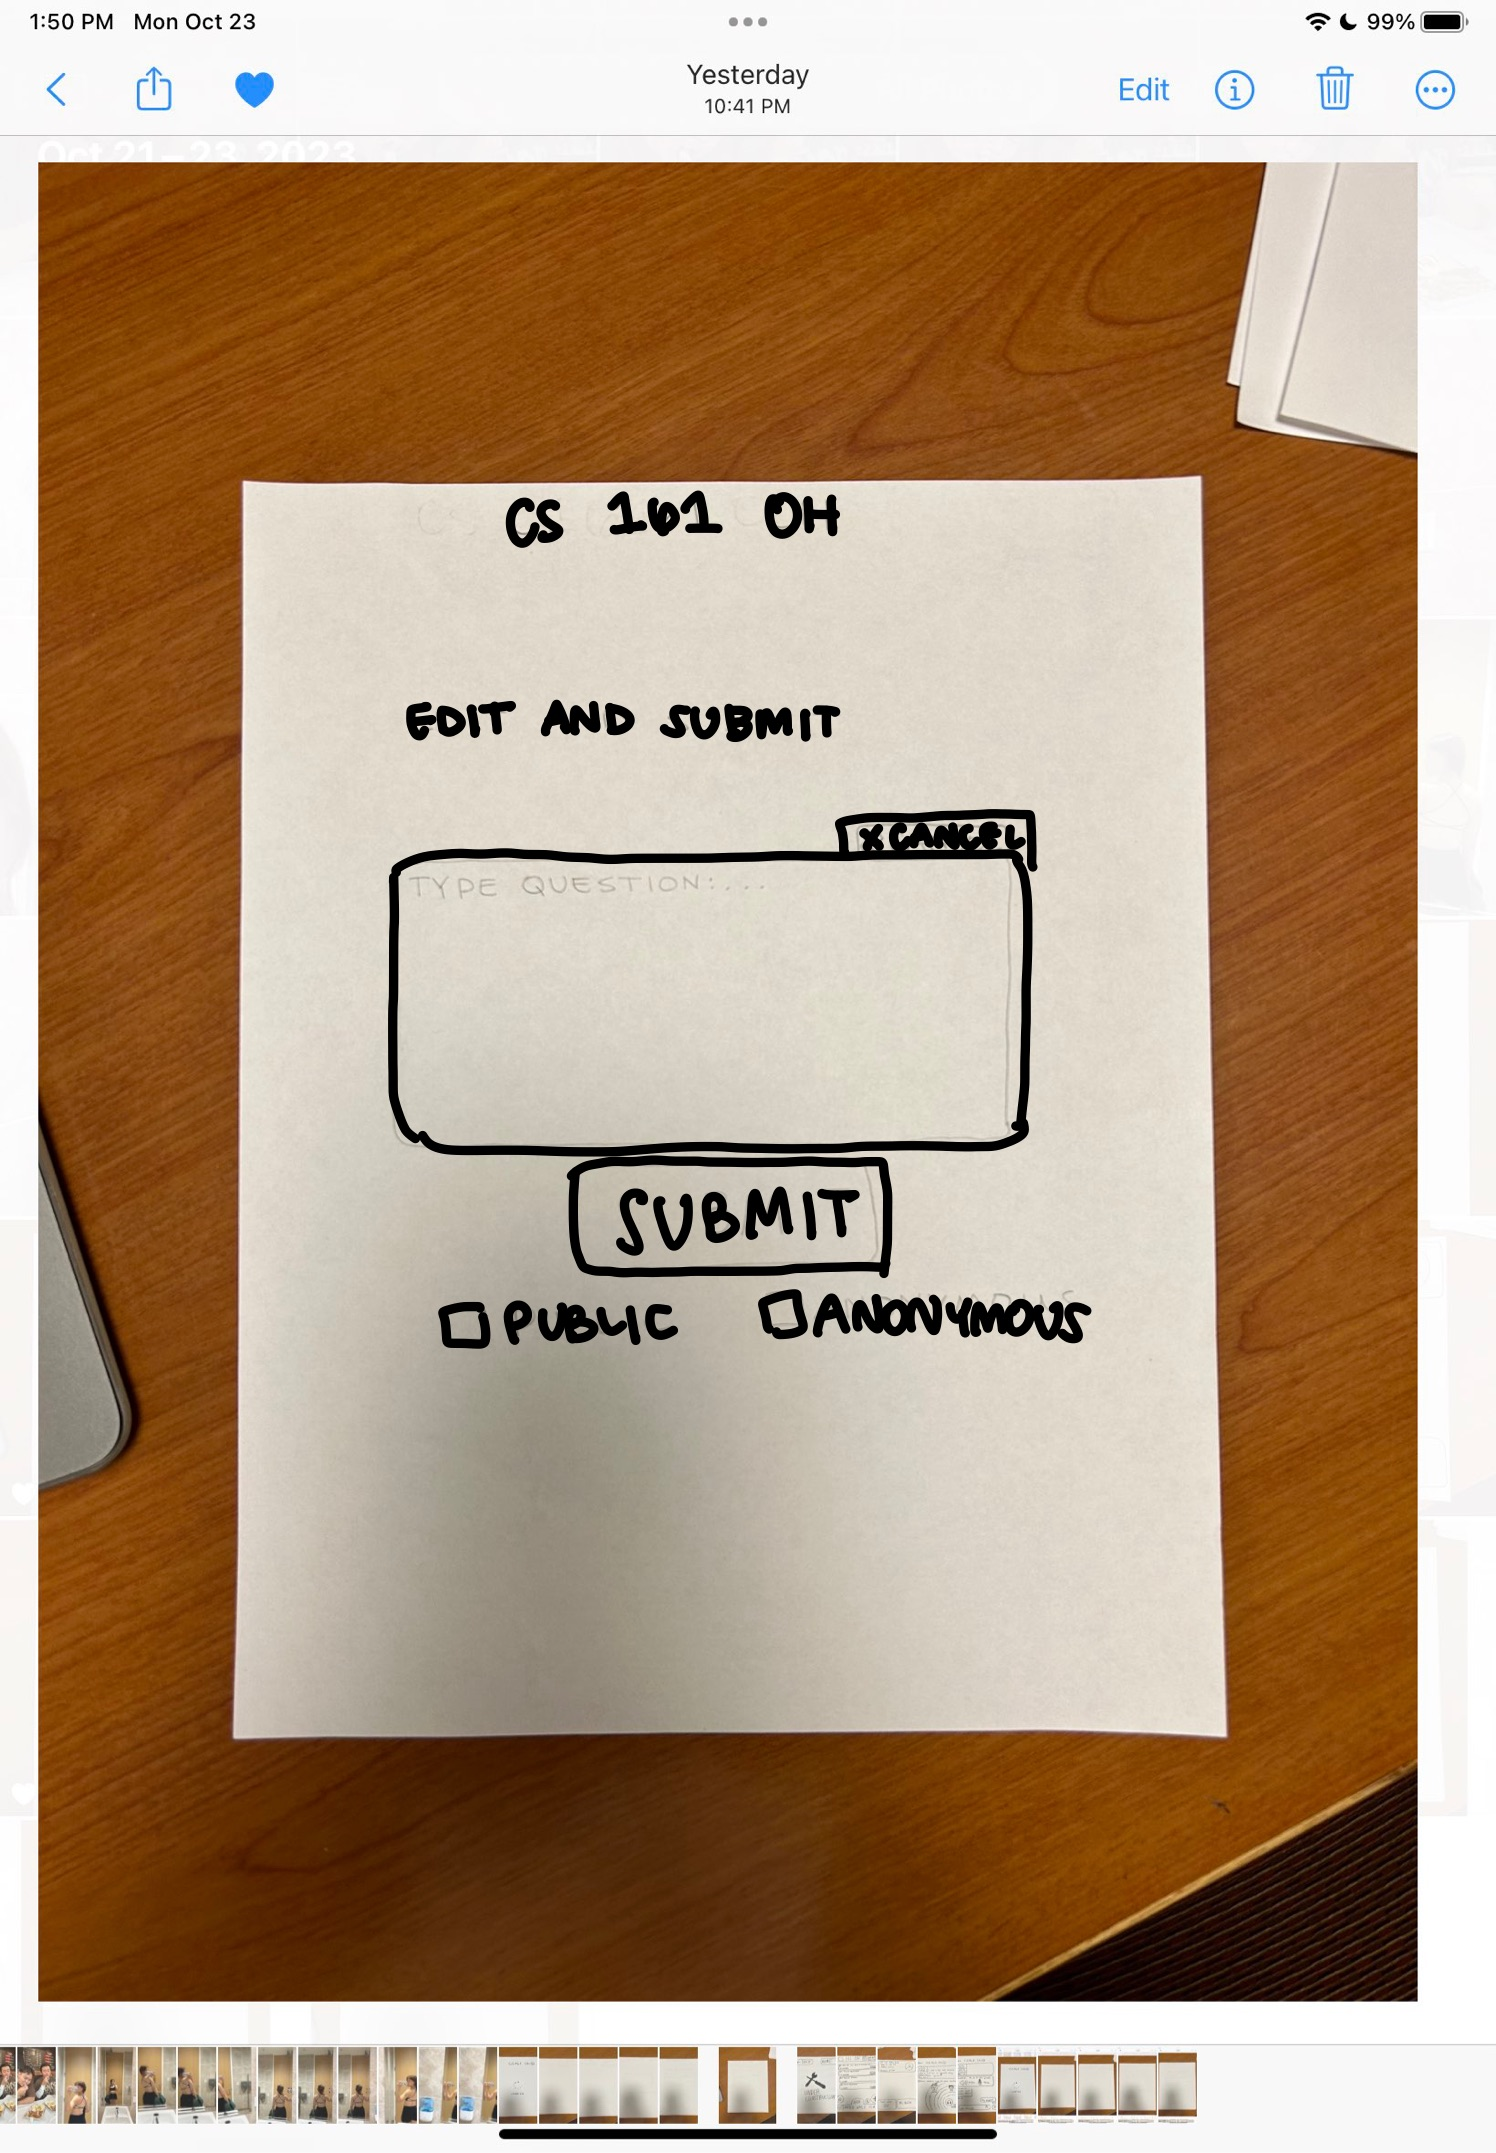 1:50 PM Mon Oct 23
99%
Yesterday
10:41 PM
Edit
Oct 21–23, 2023
CS 161 OH
EDIT AND SUBMIT
X CANCEL
TYPE QUESTION:...
SUBMIT
PUBLIC
ANONYMOUS